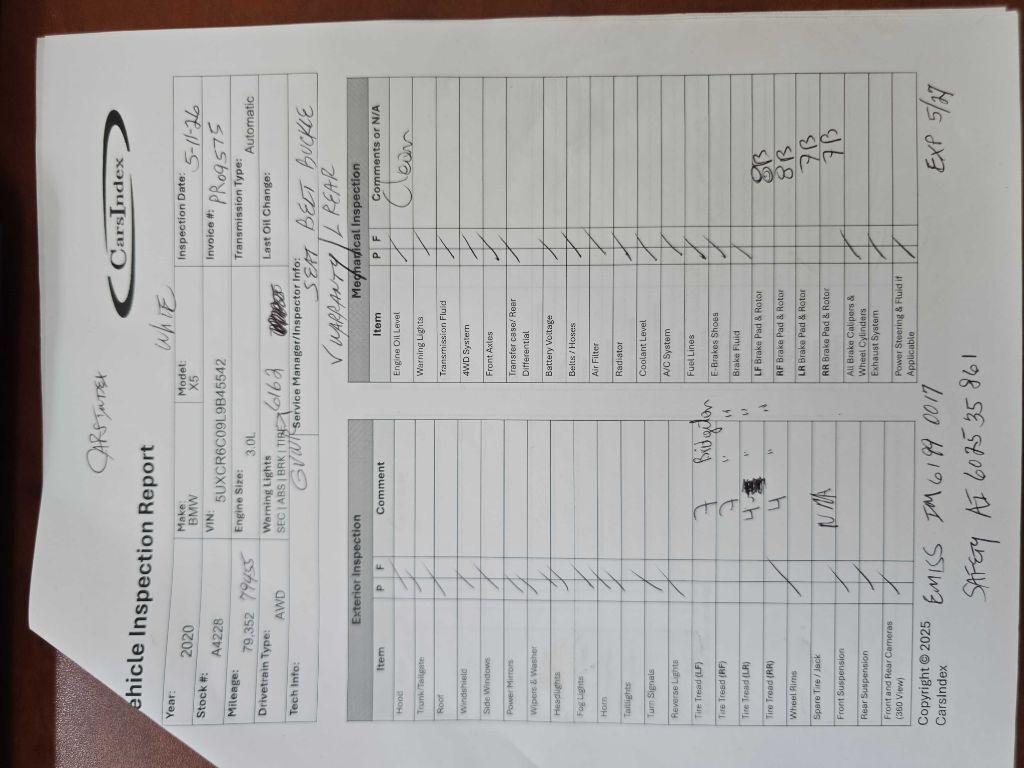 CARSINDEX
CarsIndex
ehicle Inspection Report
WHITE
Year: 2020
Make: BMW
Model: X5
Inspection Date: 5-11-26
Stock #: A4228
VIN: 5UXCR6C09L9B45542
Invoice #: PR09575
Mileage: 79,352 79455
Engine Size: 3.0L
Transmission Type: Automatic
Drivetrain Type: AWD
Warning Lights
SEC | ABS | BRK | TIRE
Last Oil Change:
GVWR 6162
Tech Info:
Service Manager/Inspector Info:
SEAT BELT BUCKLE
WARRANTY / L REAR
Exterior Inspection
Item P F Comment
Hood
Trunk/Tailgate
Roof
Windshield
Side Windows
Power Mirrors
Wipers & Washer
Headlights
Fog Lights
Horn
Taillights
Turn Signals
Reverse Lights
Tire Tread (LF) 7
Tire Tread (RF) 7 " "
Tire Tread (LR) 4 " "
Tire Tread (RR) 4 " "
Wheel Rims
Spare Tire / Jack N/A
Front Suspension
Rear Suspension
Front and Rear Cameras
(360 View)
Mechanical Inspection
Item P F Comments or N/A
Engine Oil Level Clean
Warning Lights
Transmission Fluid
4WD System
Front Axles
Transfer case/ Rear
Differential
Battery Voltage
Belts / Hoses
Air Filter
Radiator
Coolant Level
A/C System
Fuel Lines
E-Brakes Shoes
Brake Fluid
LF Brake Pad & Rotor 8B
RF Brake Pad & Rotor 8B
LR Brake Pad & Rotor 7B
RR Brake Pad & Rotor 7B
All Brake Calipers &
Wheel Cylinders
Exhaust System
Power Steering & Fluid if
Applicable
Copyright © 2025
CarsIndex
EMISS IM 6199 0017
EXP 5/27
SAFETY AI 602535861